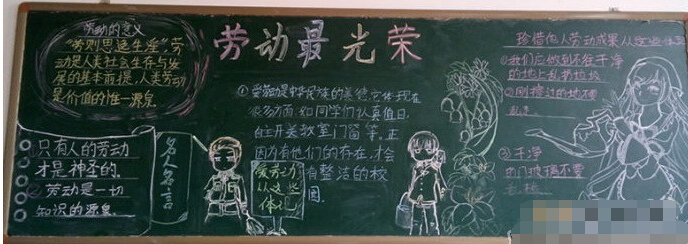 劳动最光荣
劳动的意义
"劳则思逸生淫",劳
动是人类社会生存与发
展的基本前提,人类劳动
是价值的唯一源泉
只有人的劳动
才是神圣的
劳动是一切
知识的源泉
名人名言
①爱劳动是中华民族的美德
很多方面,如同学们认真值日,
主开关教室门窗等,正
因为有他们的存在,才会
有整洁的校
园
爱劳动
从这些
体
珍惜他人劳动成果从这些
①我们应做到不在干净
的地上乱扔垃圾
②刚擦过的地不要
乱走
③干净
的玻璃不要